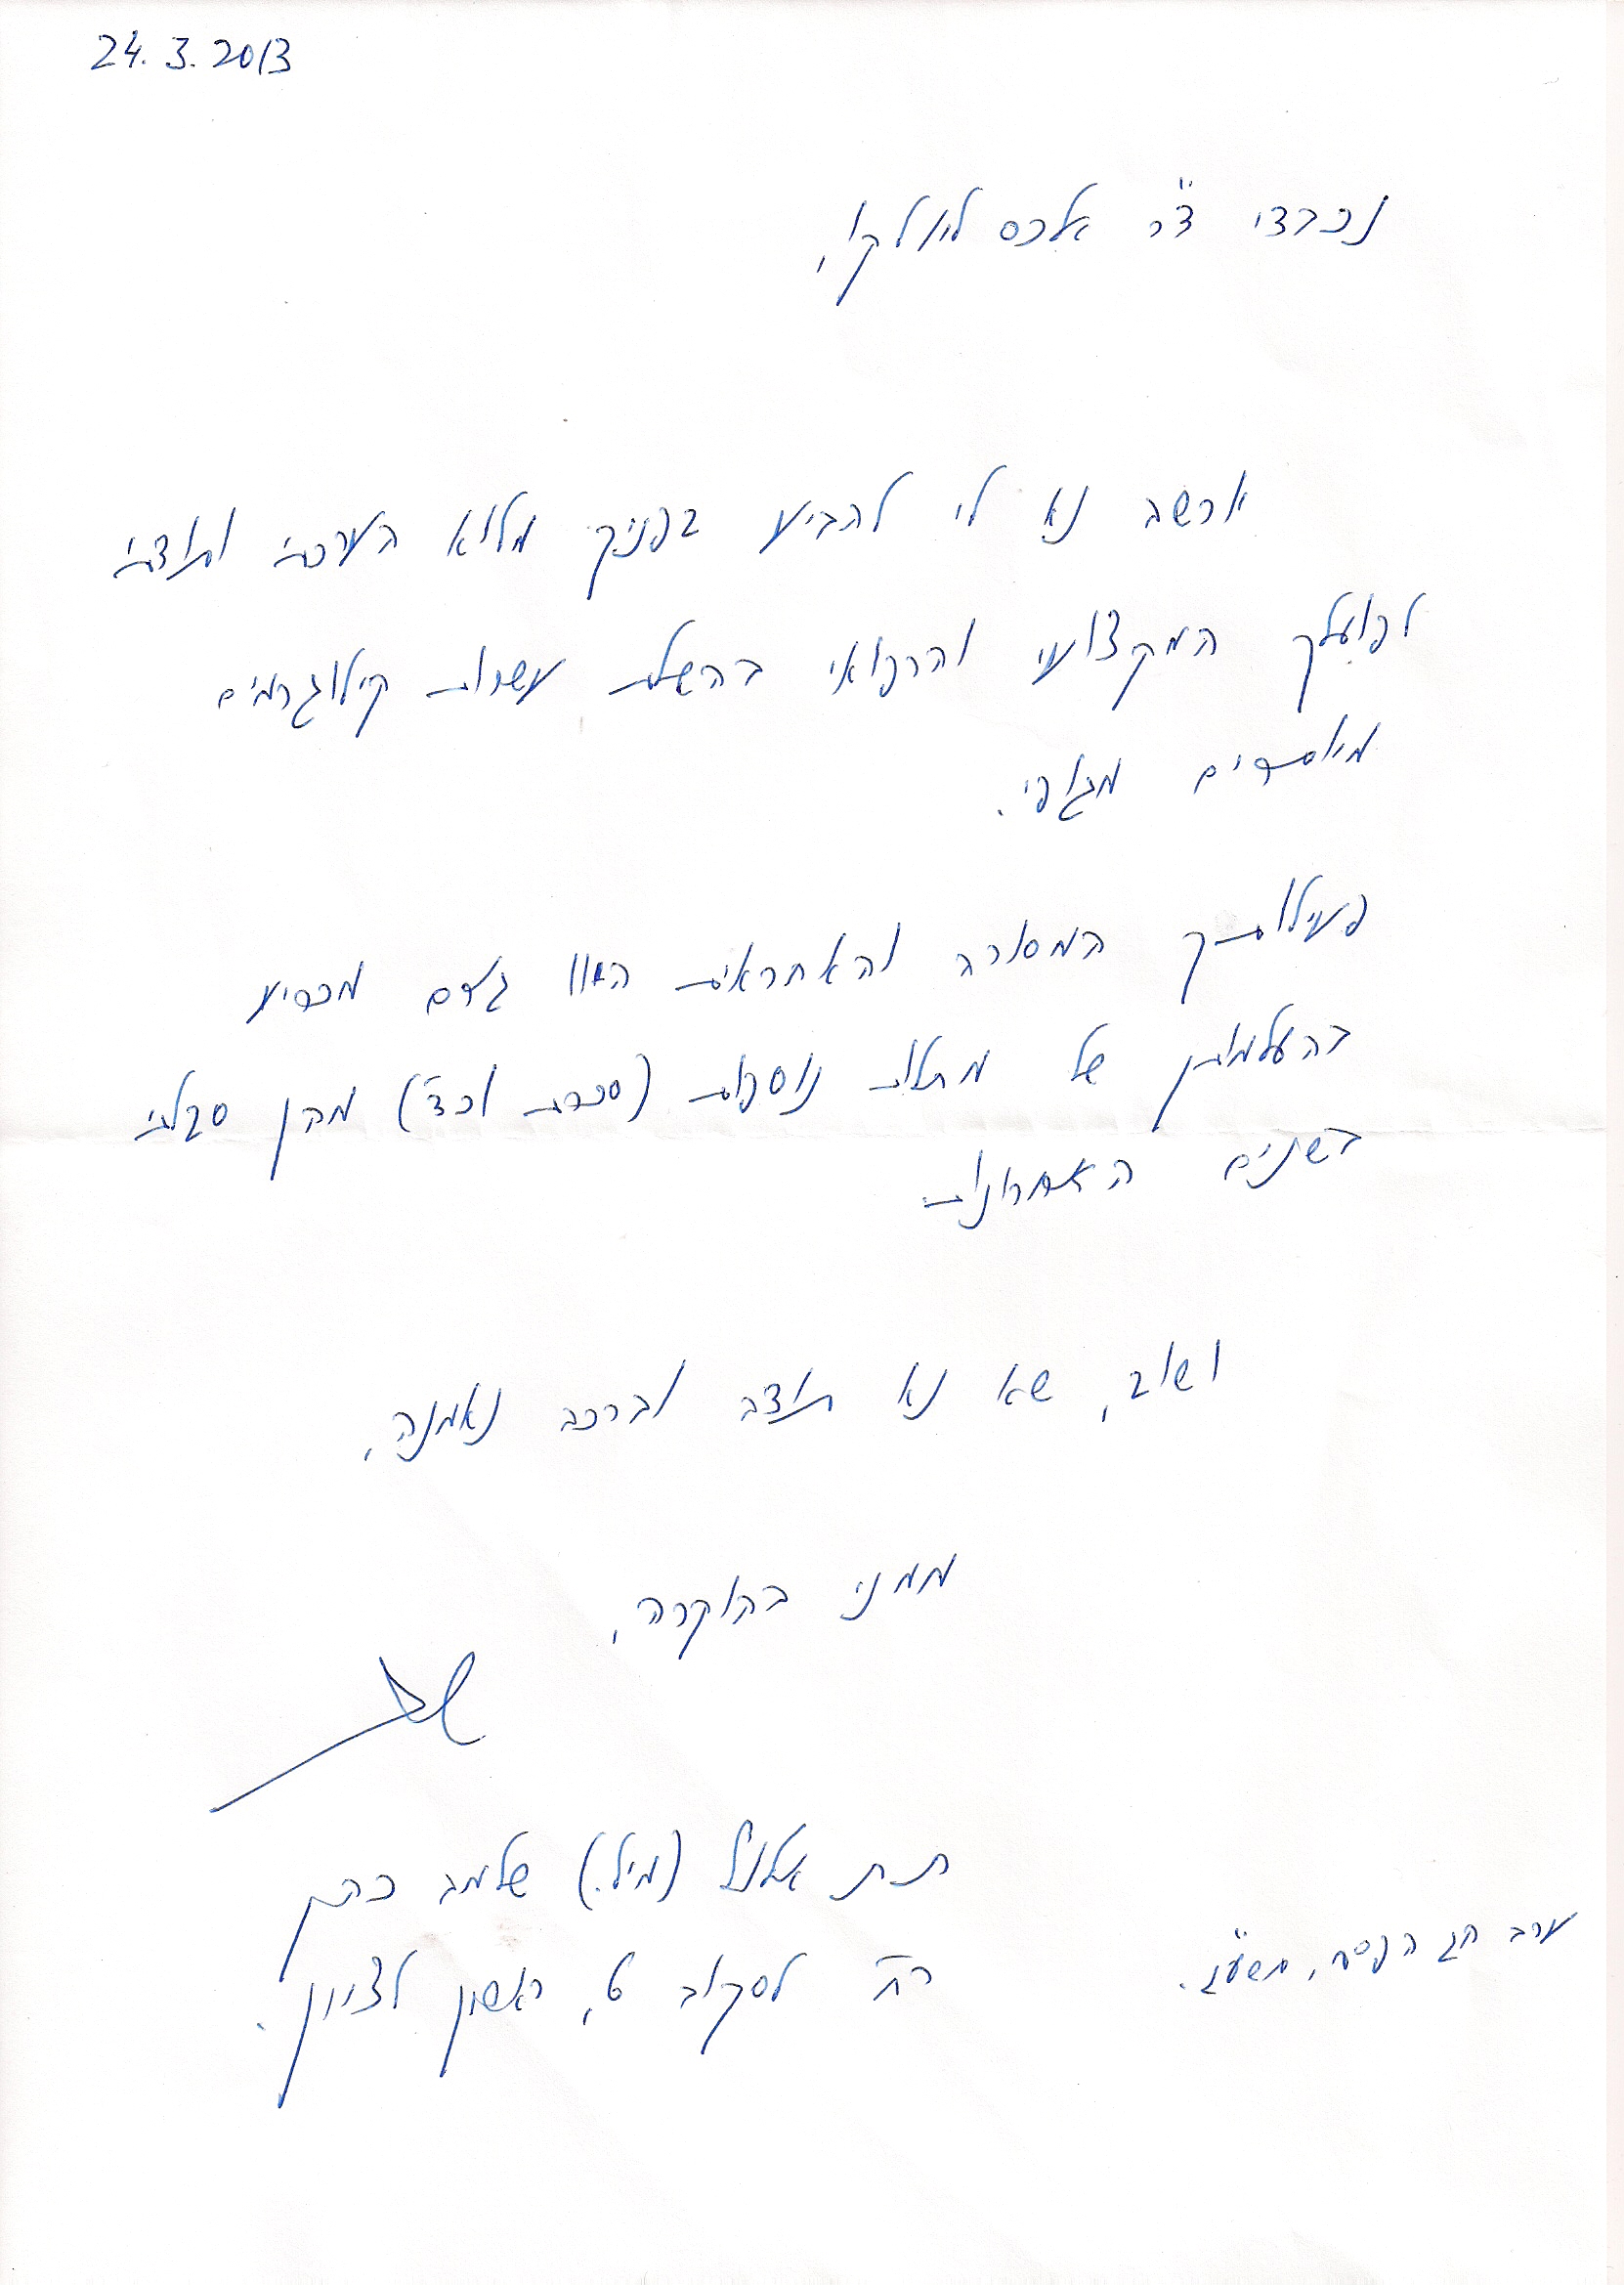 24.3.2013
נכבדי ד"ר אלכס
יורשה נא לי להביע בפניך מלוא הערכתי ותודתי
לפועלך המקצועי והרפואי בהשלת עשרות קילוגרמים
מיותרים מגופי.
פעילותך המסורה והאחראית היוו גורם מכריע
בהעלמותן של מחלות נוספות (סכרת וכד') מהן סבלתי
בשנים האחרונות
ושוב, שא נא תודה וברכה נאמנה,
ממני בהוקרה,
תת אלוף (מיל.) שלמה כהן
רח' 9, ראשון לציון.
ערב חג הפסח, תשע"ג.